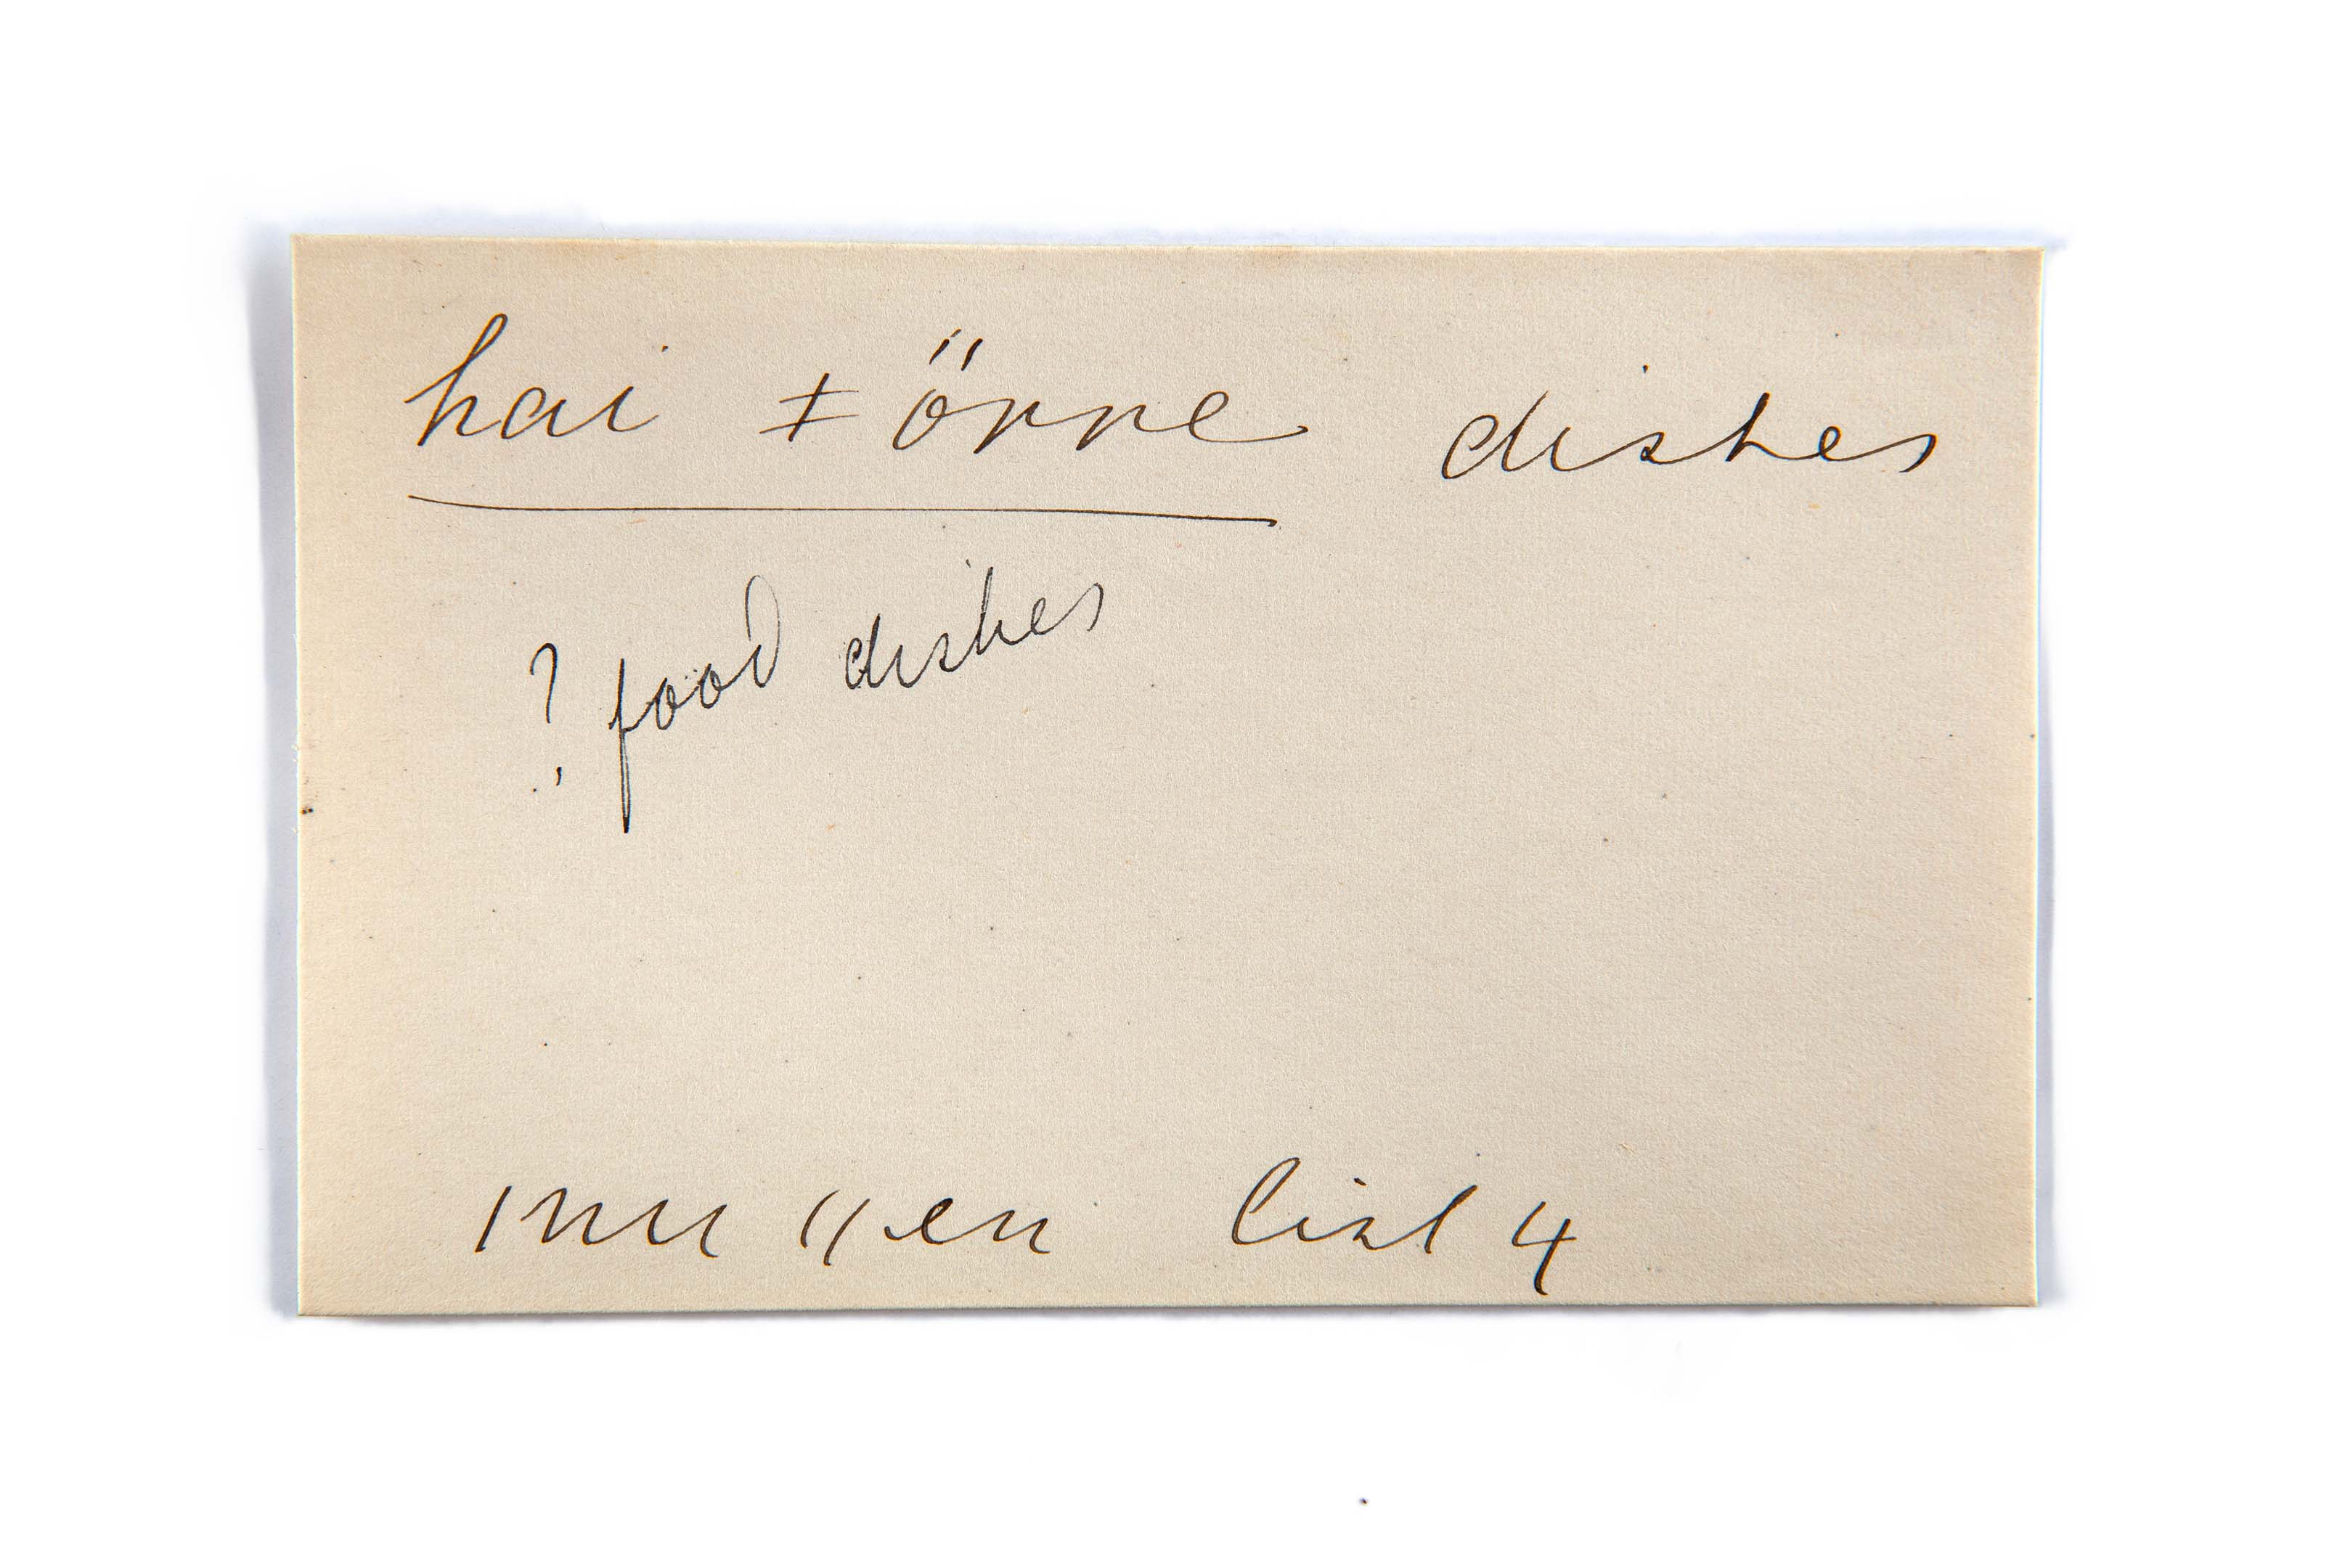 hai ǂörre dishes
? food dishes
ǀnu ǁen list 4